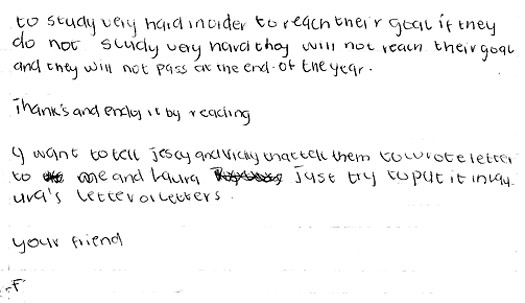 to study very hard inorder to reach their goal if they
do not study very hard thay will not reach their goal
and they will not pass at the end of the year.
Thank's and enday it by reading
y want to tell jescy and Vicky that tell them to wrote letter
to me and Laura just try to put it in lay
ura's letter or letters.
your friend
-F